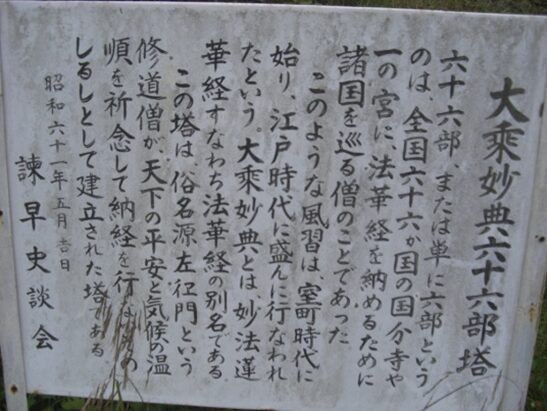 大乗妙典六十六部塔
六十六部、または単に六部という
のは、全国六十六ヵ国の国分寺や
一の宮に、法華経を納めるために
諸国を巡る僧のことであった
このような風習は、室町時代に
始り、江戸時代に盛んに行なわれ
たという。大乗妙典とは、妙法蓮
華経すなわち法華経の別名である
この塔は俗名源左衽門という
修道僧が、天下の平安と気候の温
順を祈念して納経を行な の
しるしとして建立された塔である
昭和六十一年五月吉日
諫早史談会